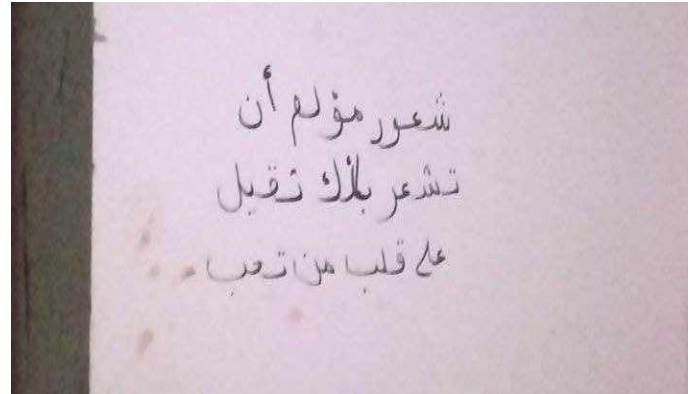 شعور مؤلم أن
تشعر بأنك ثقيل
على قلب من تحب